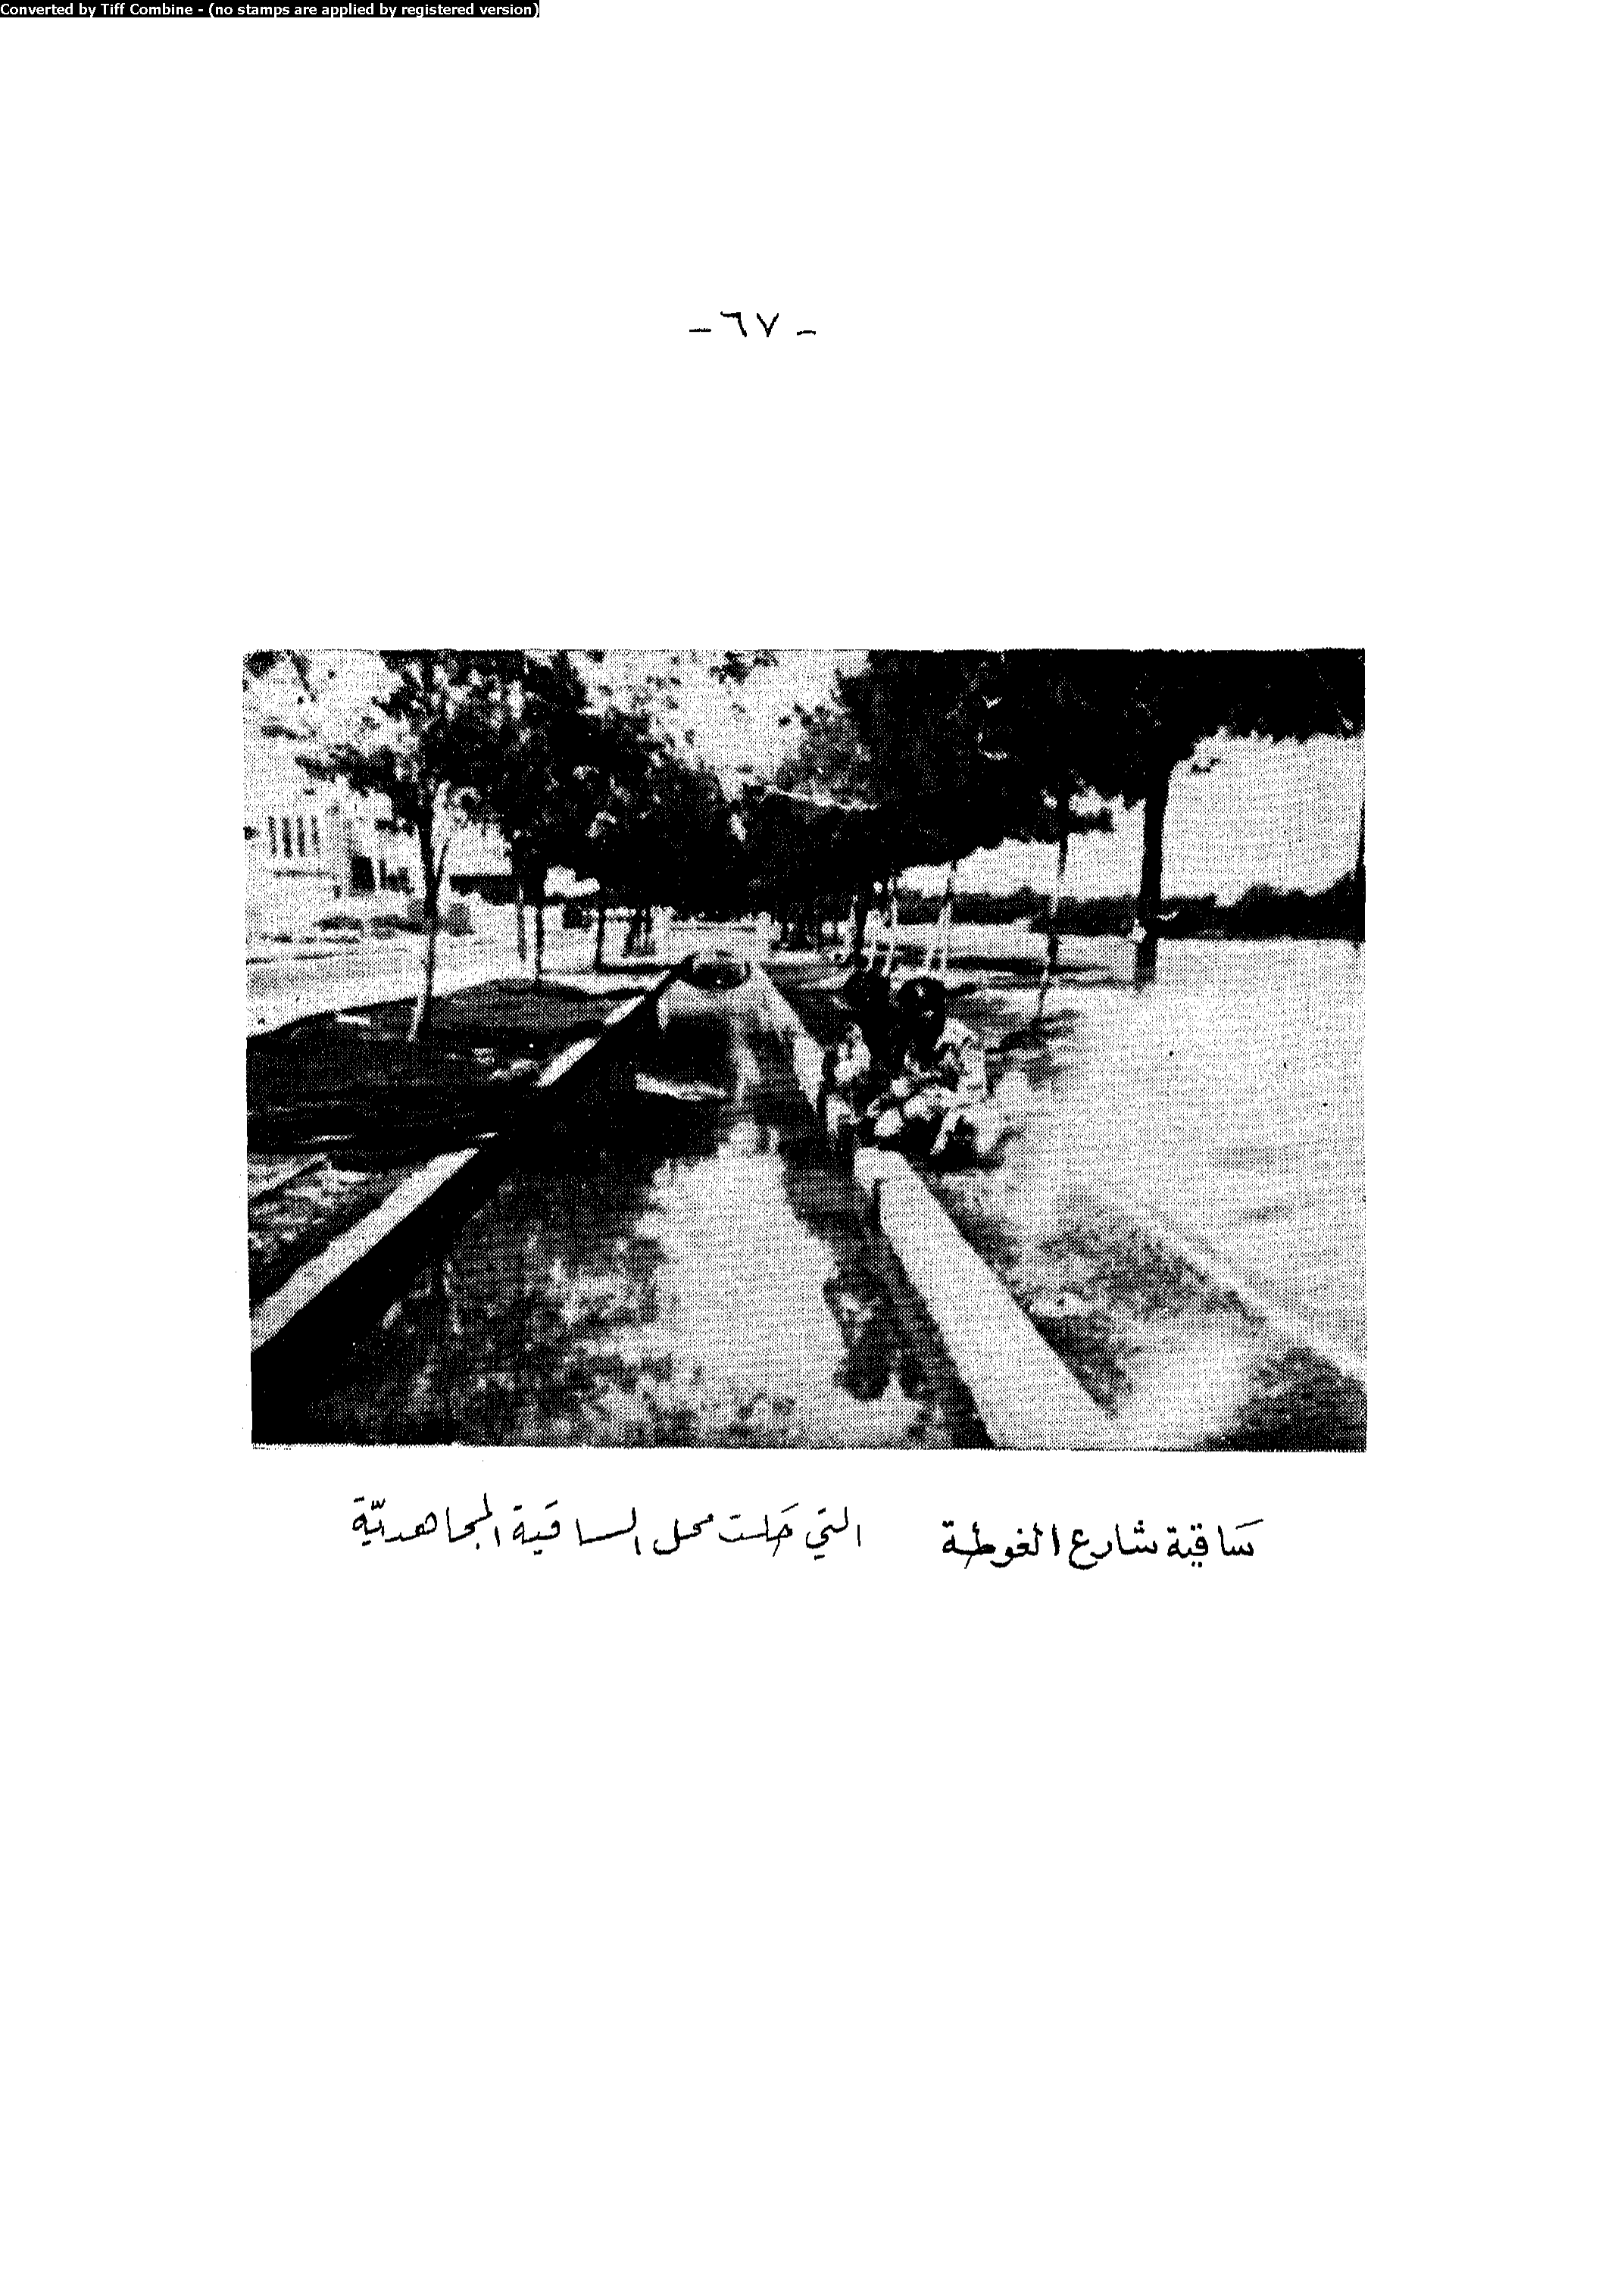 Converted by Tiff Combine - (no stamps are applied by registered version)
- ٦٧ -
ساقية شارع الغوطة التي حلت محل الساقية المجاهديّة